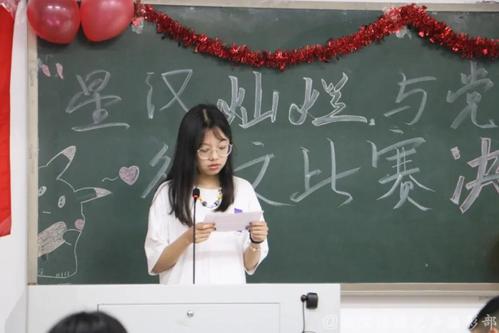 “星汉灿烂,与党
文比赛决
影部